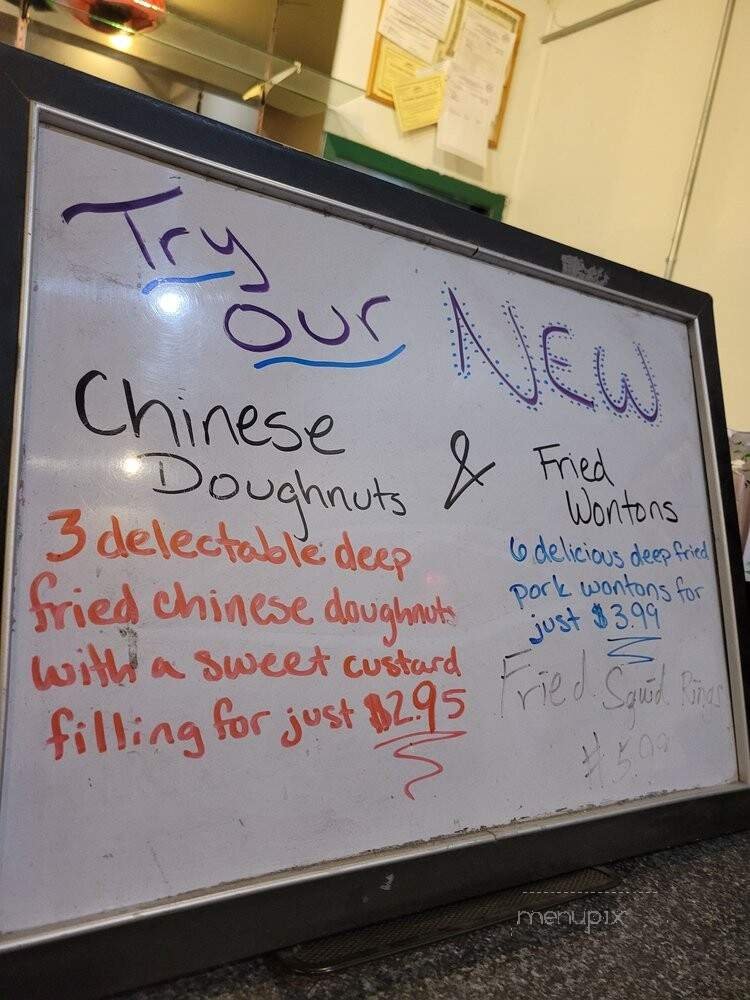 Try
our NEW
Chinese
Doughnuts
&
Fried
Wontons
3 delectable deep
fried chinese doughnuts
with a sweet custard
filling for just $2.95
6 delicious deep fried
pork wontons for
just $3.99
Fried Squid Rings
$5.99
menupix